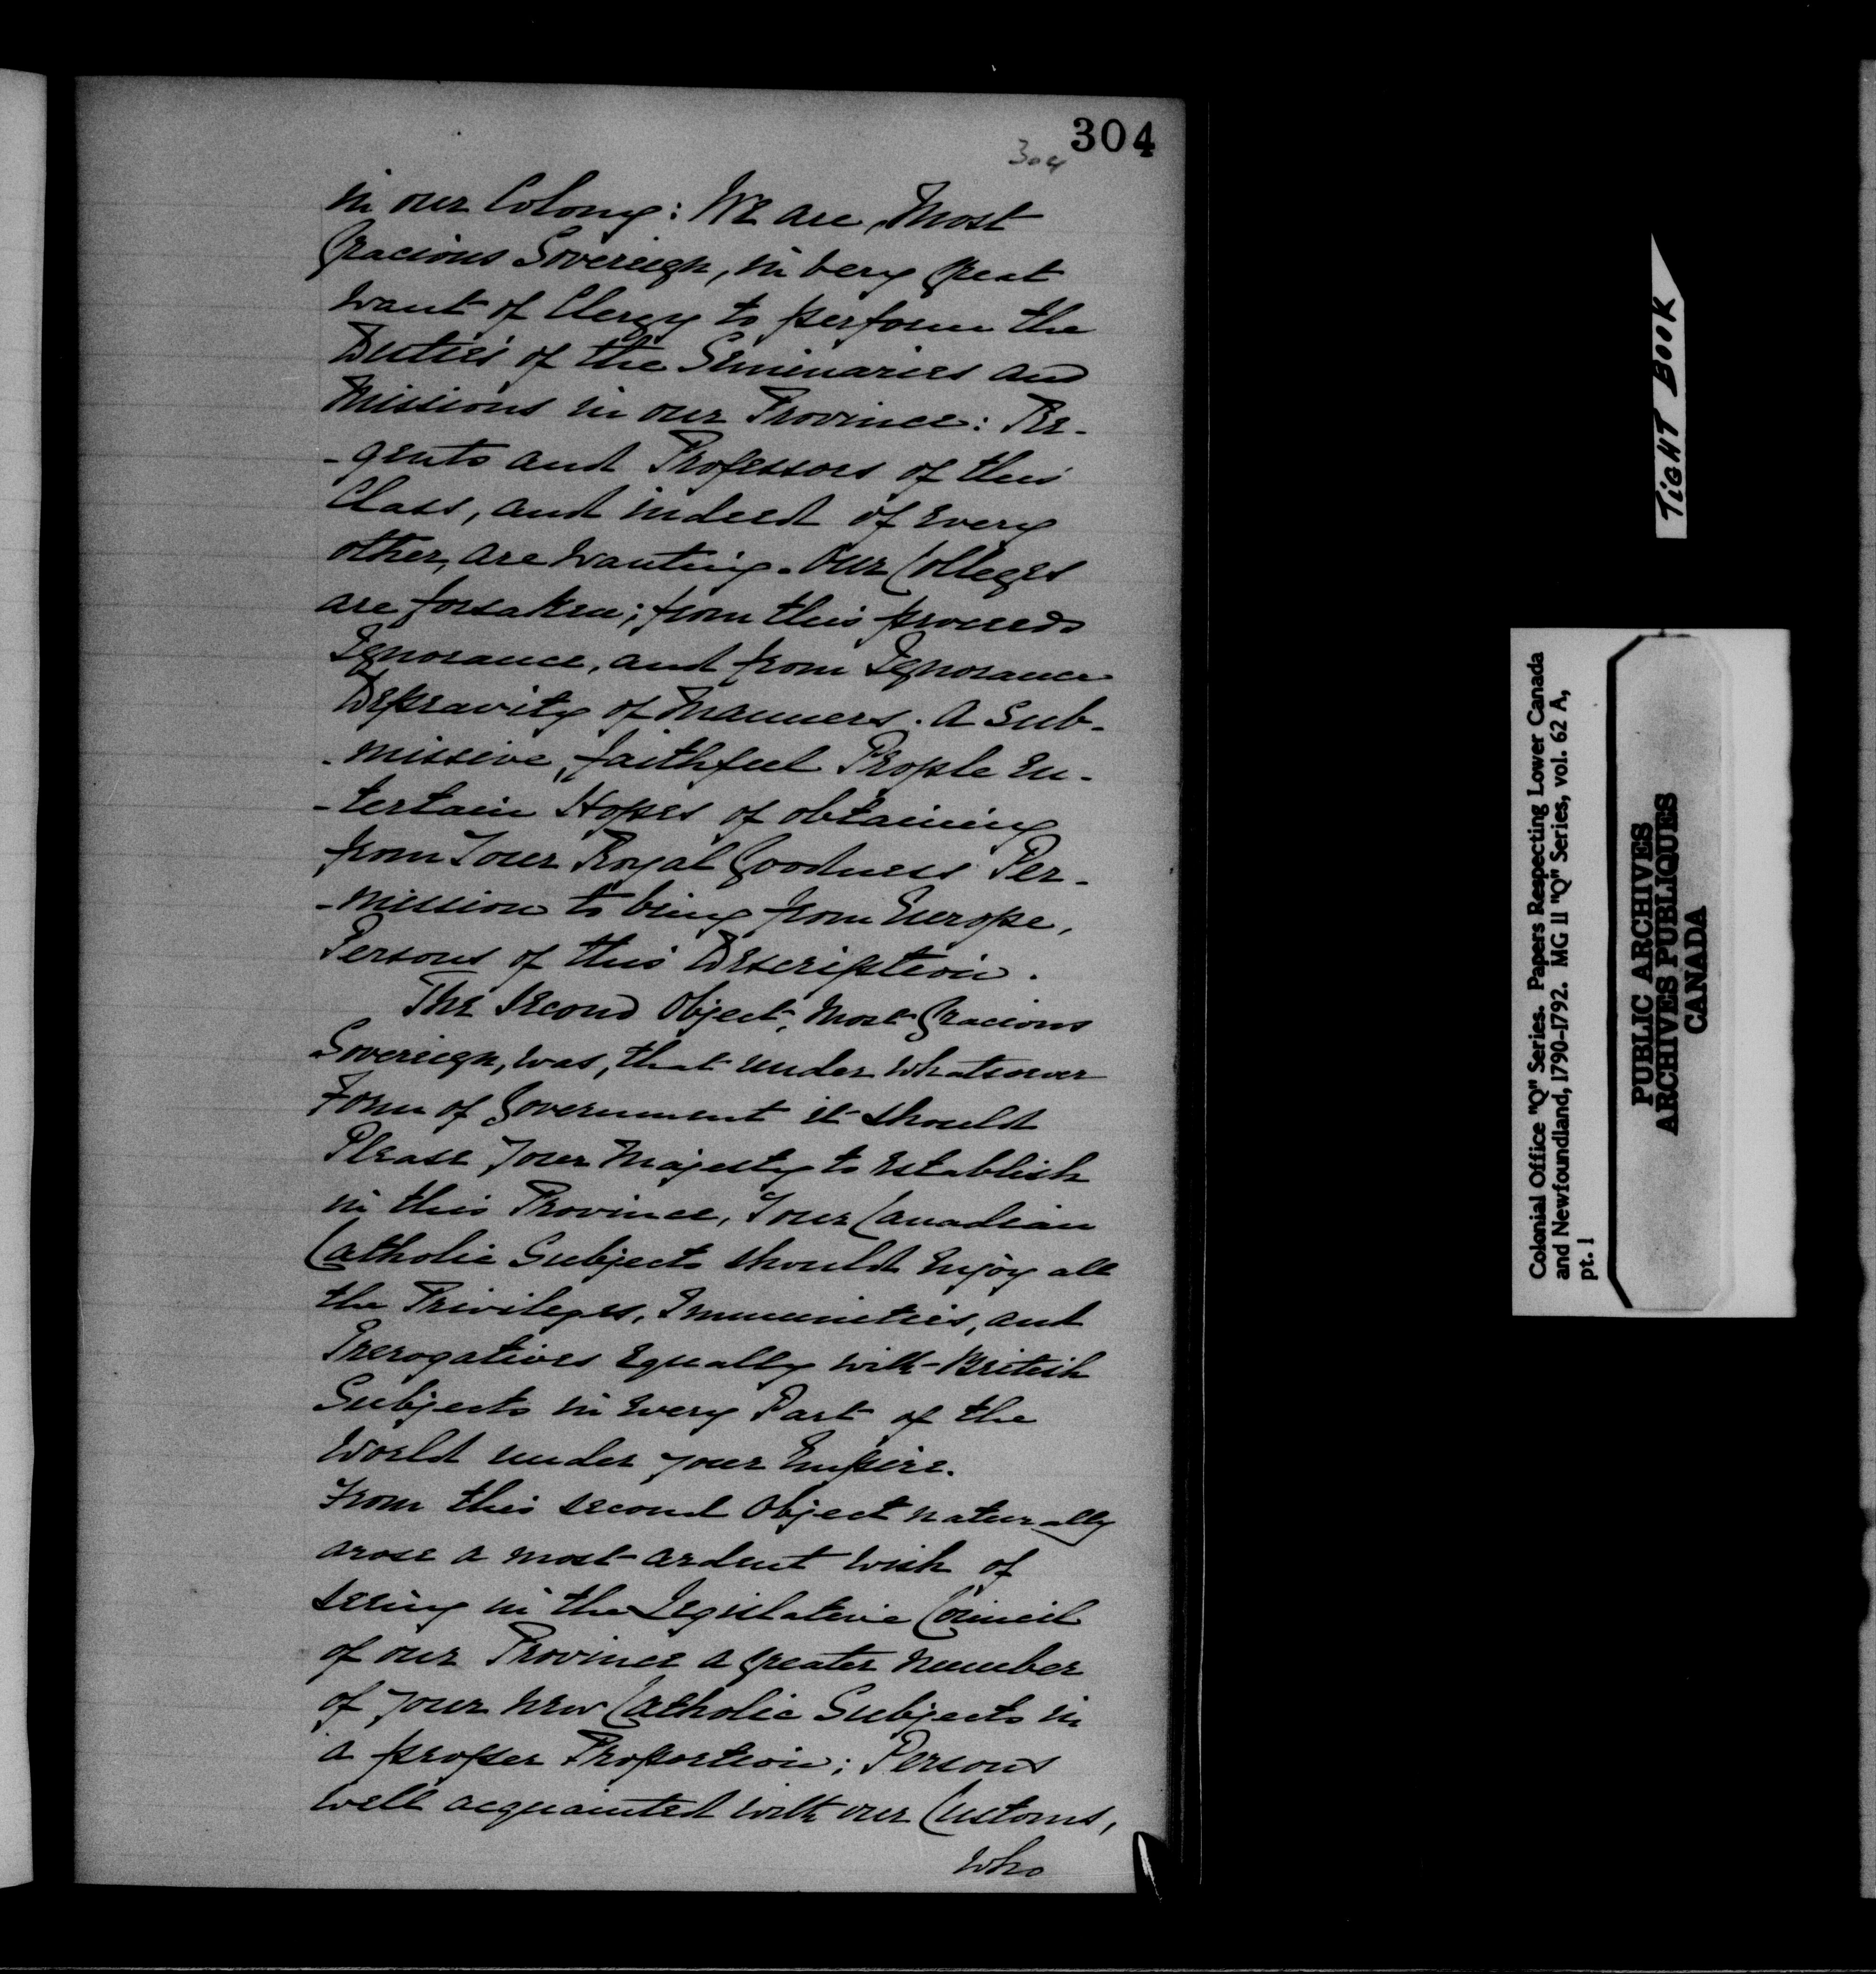 304
304
in our Colony: We are, Most
Gracious Sovereign, in very great
want of Clergy to perform the
Duties of the Seminaries and
Missions in our Province: Re-
-gents and Professors of this
Class, and indeed of every
other, are wanting. Our Colleges
are forsaken; from this proceeds
Ignorance, and from Ignorance
Depravity of Manners. A Sub-
-missive, faithful People en-
-tertain Hopes of obtaining
from Your Royal Goodness Per-
-mission to bring from Europe,
Persons of this Description.
The second Object, Most Gracious
Sovereign, was, that under whatsoever
Form of Government it should
Please Your Majesty to establish
in this Province, Your Canadian
Catholic Subjects should enjoy all
the Privileges, Immunities, and
Prerogatives equally with British
Subjects in every Part of the
World under your Empire.
From this second Object naturally
arose a most ardent wish of
seeing in the Legislative Council
of our Province a greater number
of your new Catholic Subjects in
a proper Proportion; Persons
well acquainted with our Customs,
who
TIGHT BOOK
Colonial Office "Q" Series. Papers Respecting Lower Canada
and Newfoundland, 1790-1792. MG 11 "Q" Series, vol. 62 A,
pt. 1
PUBLIC ARCHIVES
ARCHIVES PUBLIQUES
CANADA